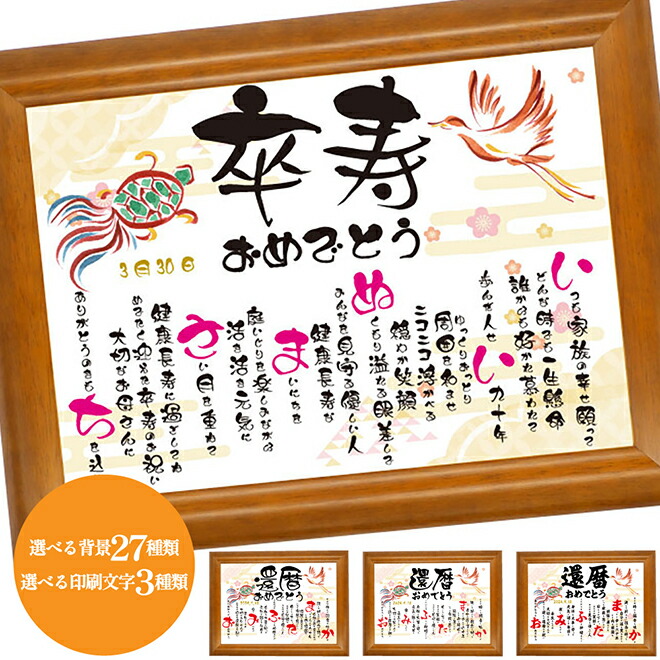 卒寿
おめでとう
3月30日
いつも家族の幸せ願って
どんな時でも一生懸命
誰からも好かれ慕われて
歩んだ人生いい九十年
ゆっくりおっとり
周囲を和ませ
ニコニコ浮かべる
穏やか笑顔
ぬくもり溢れる眼差しで
みんなを見守る優しい人
健康長寿な
まいにちを
庭いじりを楽しみながら
活き活き元気に
さい月を重ねて
健康長寿に過ごしてね
めでたく迎えた卒寿のお祝い
大切なお母さんに
ありがとうのきもちを込
選べる背景27種類
選べる印刷文字3種類
還暦
おめでとう
還暦
おめでとう
還暦
おめでとう